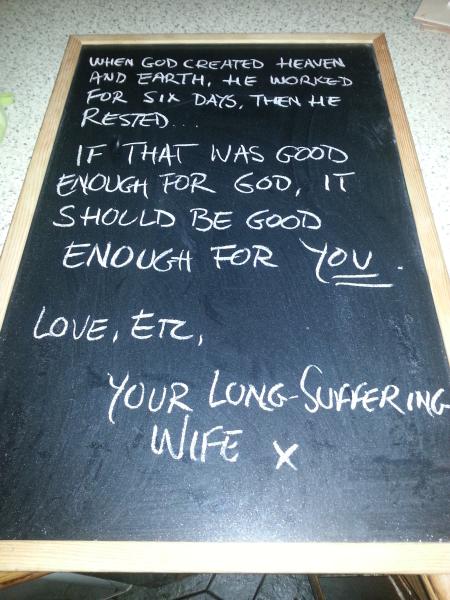 WHEN GOD CREATED HEAVEN
AND EARTH, HE WORKED
FOR SIX DAYS, THEN HE
RESTED...
IF THAT WAS GOOD
ENOUGH FOR GOD, IT
SHOULD BE GOOD
ENOUGH FOR YOU.
LOVE, ETC,
YOUR LONG-SUFFERING
WIFE X